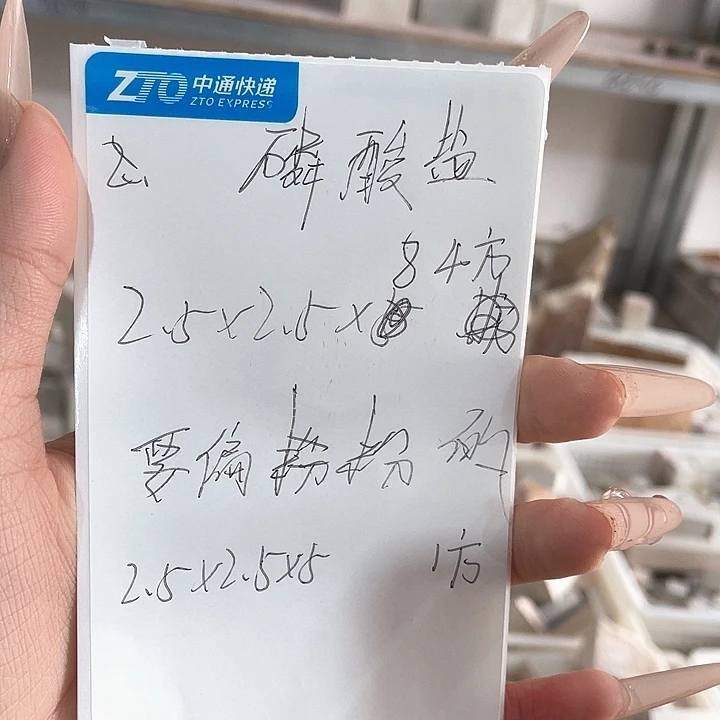 ZTO 中通快递
ZTO EXPRESS
磷酸盐
8 4方
2.5×2.5×
要偏粉粉的
2.5×2.5×5 1方